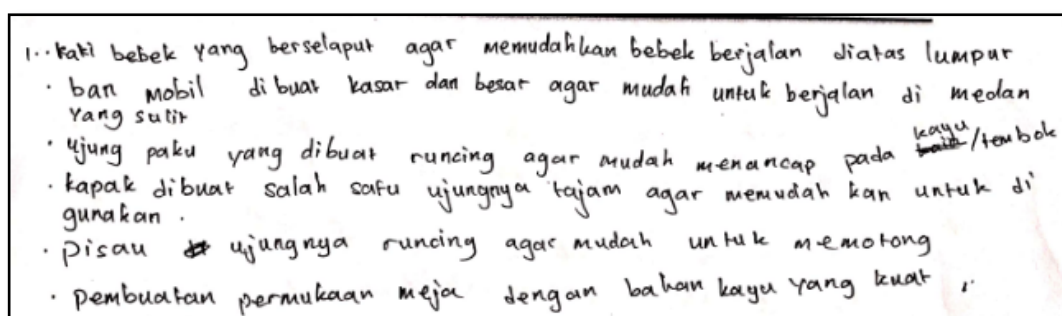 1.. kaki bebek yang berselaput agar memudahkan bebek berjalan diatas lumpur
· ban mobil di buat kasar dan besar agar mudah untuk berjalan di medan
yang sulit
· Ujung paku yang dibuat runcing agar mudah menancap pada kayu/tembok
· kapak dibuat salah satu ujungnya tajam agar memudah kan untuk di
gunakan.
· pisau ujungnya runcing agar mudah untuk memotong
· pembuatan permukaan meja dengan bahan kayu yang kuat